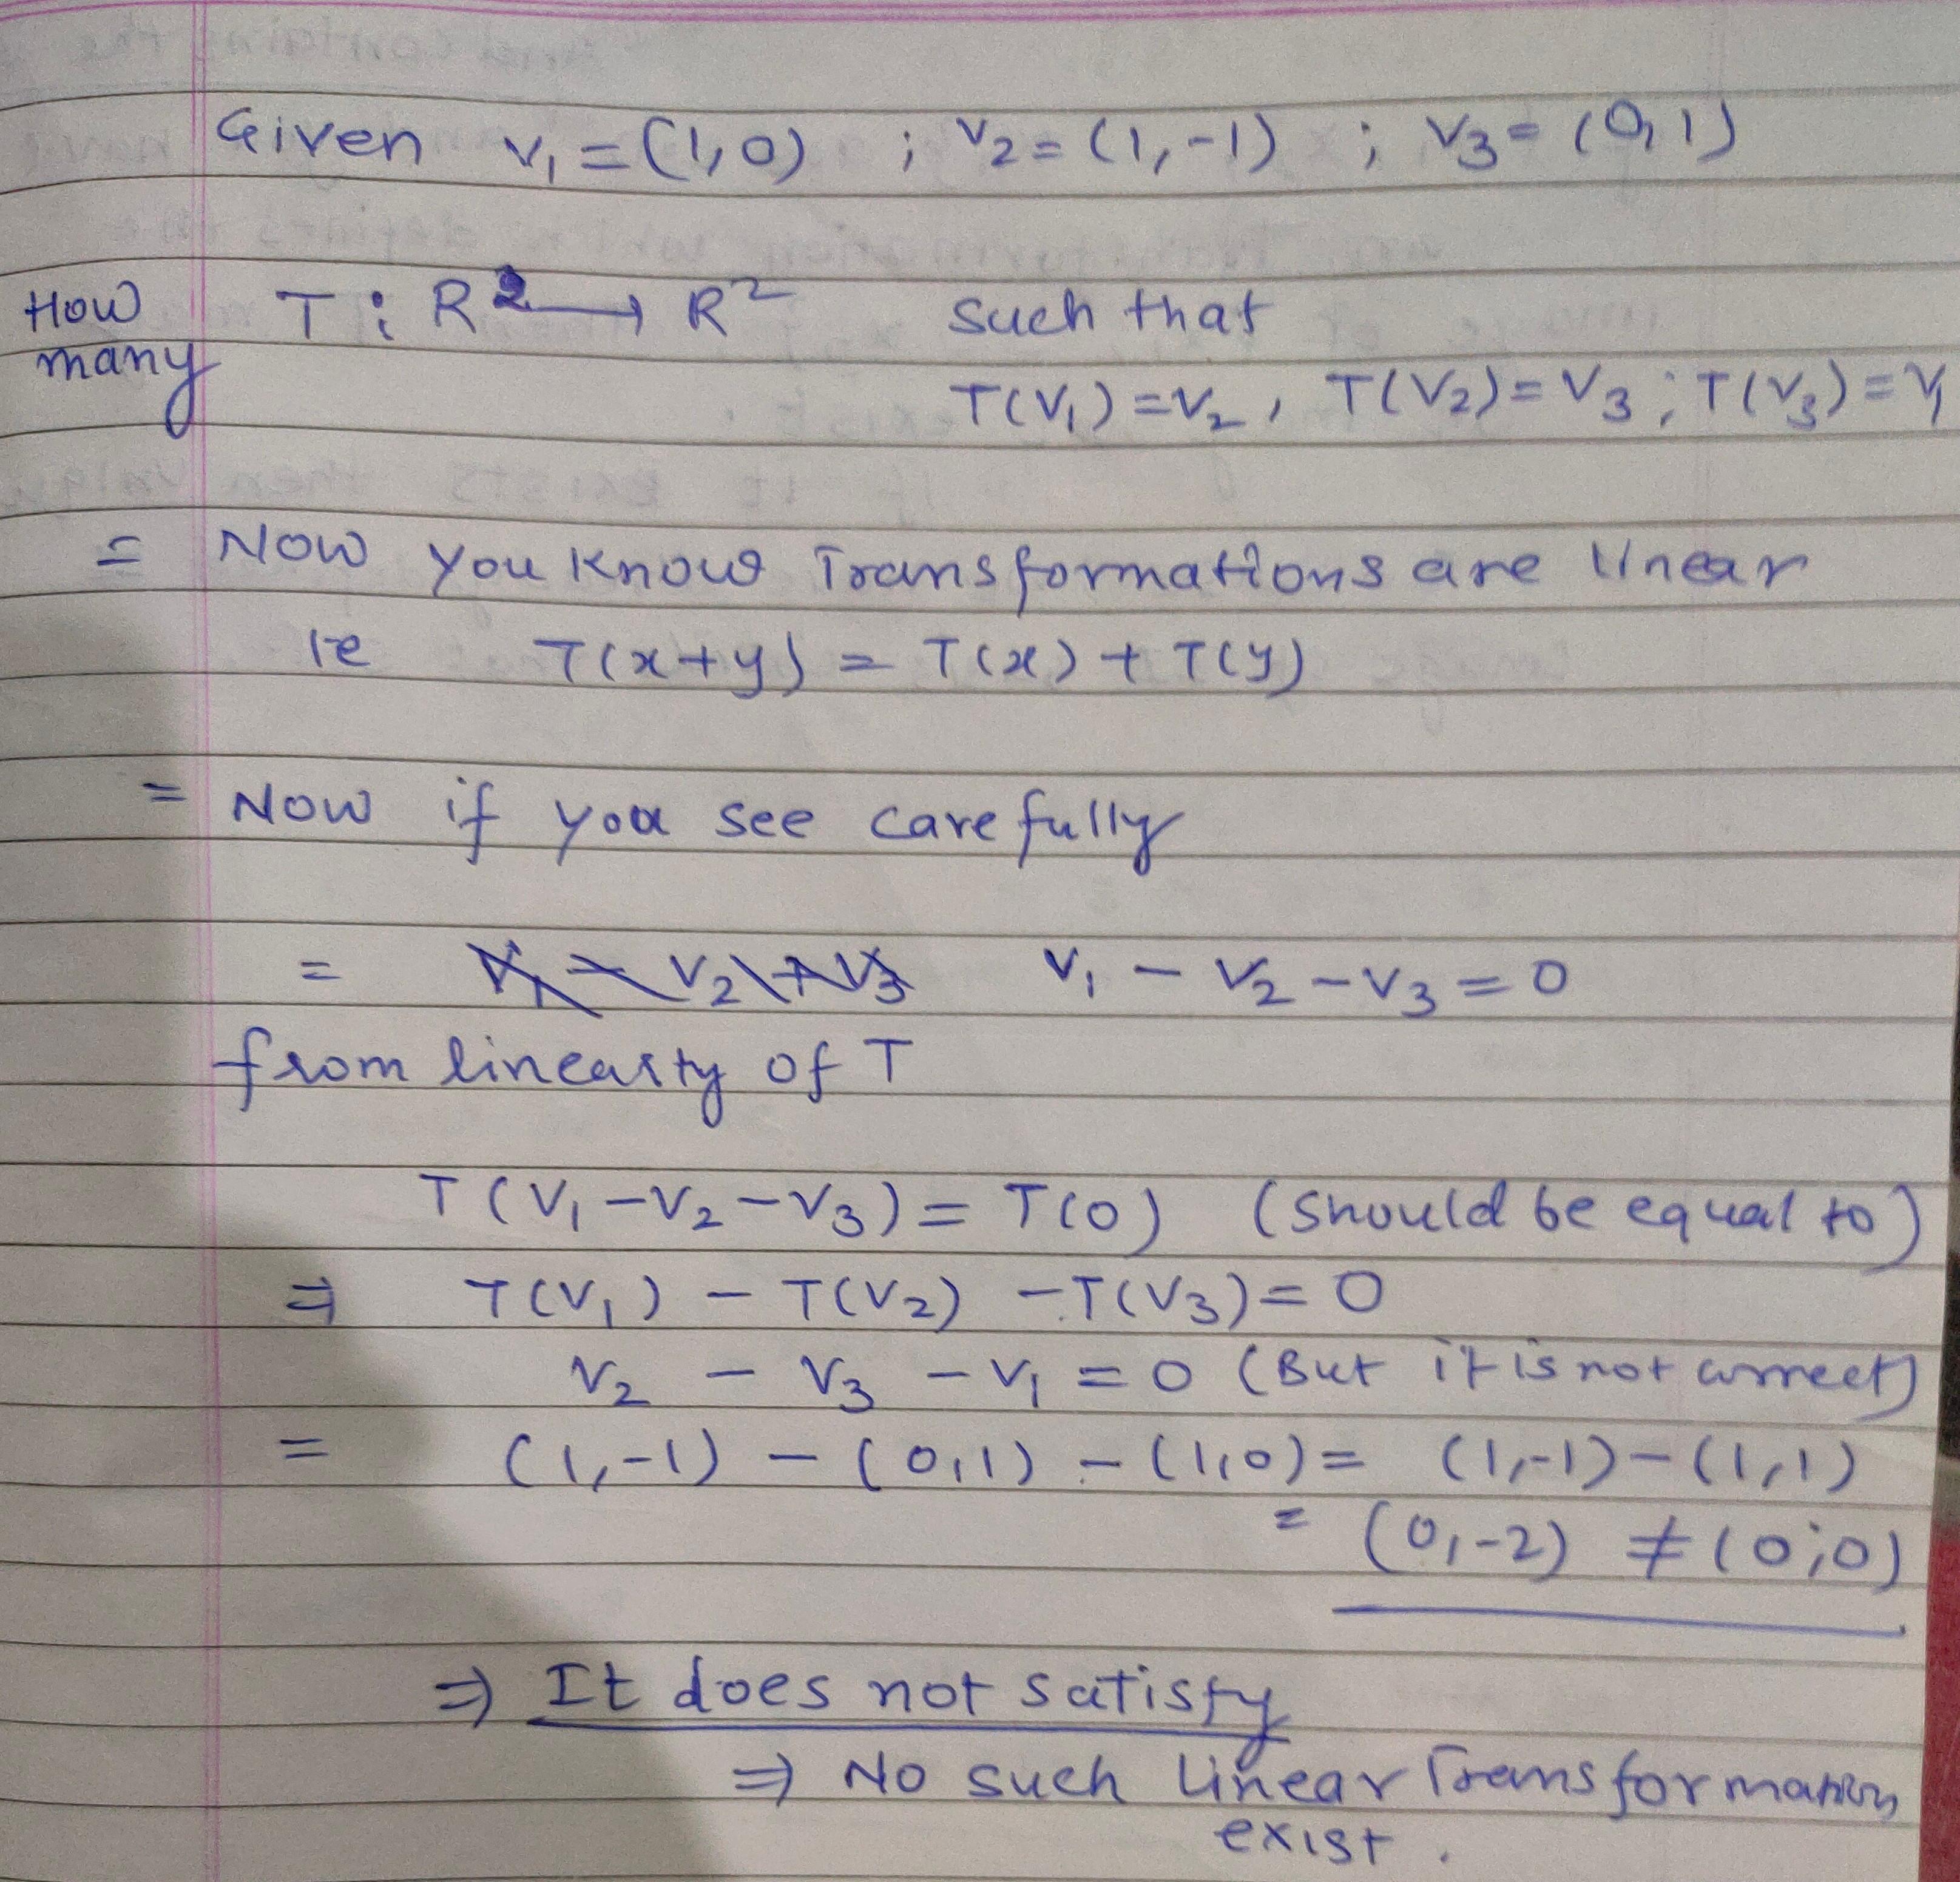 Given v₁ = (1,0) ; v₂ = (1,-1) ; v₃ = (0,1)
How many T : R² → R² such that
T(V₁) = V₂ , T(V₂) = V₃ ; T(V₃) = V₁
= Now you know Transformations are linear
ie T(x+y) = T(x) + T(y)
= Now if you see carefully
= V₁ - V₂ - V₃ = 0
from linearty of T
T(V₁ - V₂ - V₃) = T(0) (should be equal to)
⇒ T(V₁) - T(V₂) - T(V₃) = 0
V₂ - V₃ - V₁ = 0 (But it is not correct)
= (1,-1) - (0,1) - (1,0) = (1,-1) - (1,1)
= (0,-2) ≠ (0,0)
⇒ It does not satisfy
⇒ No such linear Transformation
exist .